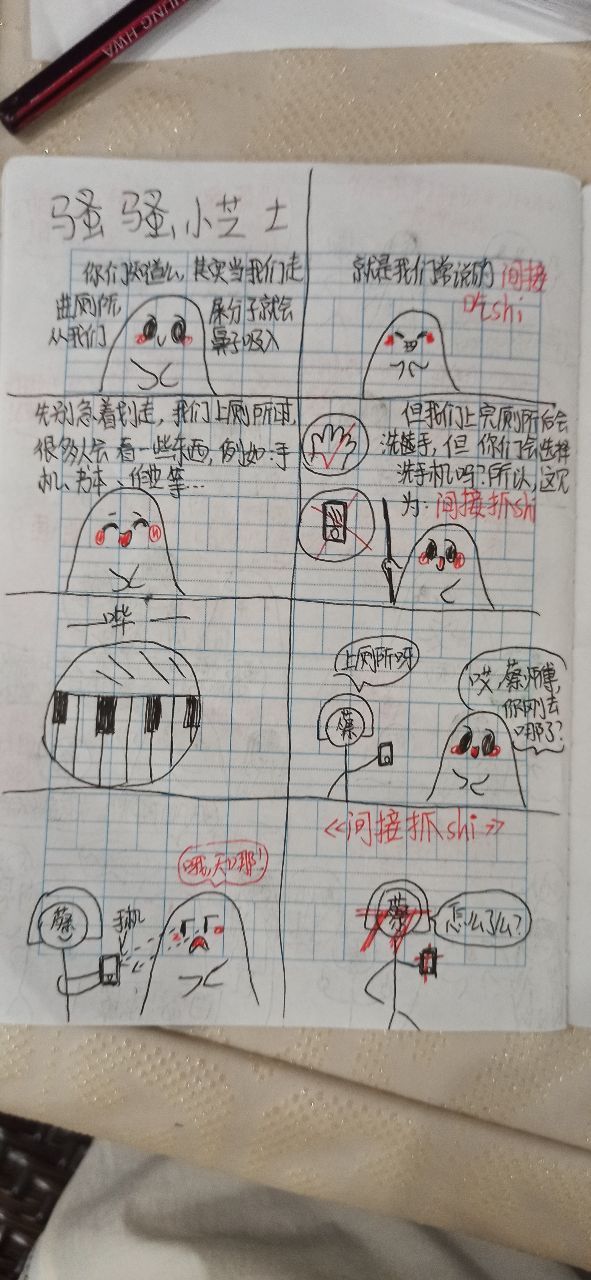 LING HWA
骚骚小芝士
你们知道么,其实当我们走
进厕所, 屎分子就会
从我们 鼻子吸入
就是我们常说的 间接
吃shi
先别急着划走,我们上厕所时,
很多人会看一些东西,例如:手
机、书本、作业等...
但我们上完厕所后会
洗洗手,但你们会选择
洗手机吗?所以,这又
为:间接抓shi
—哗—
上厕所呀
蔡
哎,蔡师傅,
你刚去
哪了?
哦,天哪!
蔡
手机
《间接抓shi》
蔡
怎么了么?